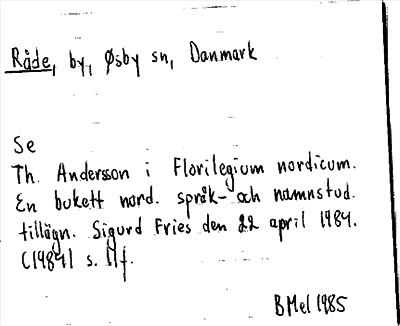 Råde, by, Øsby sn, Danmark
Se
Th. Andersson i Florilegium nordicum.
En bukett nord. språk- och namnstud.
tillägn. Sigurd Fries den 22 april 1984.
(1984) s. 11f.
BMel 1985